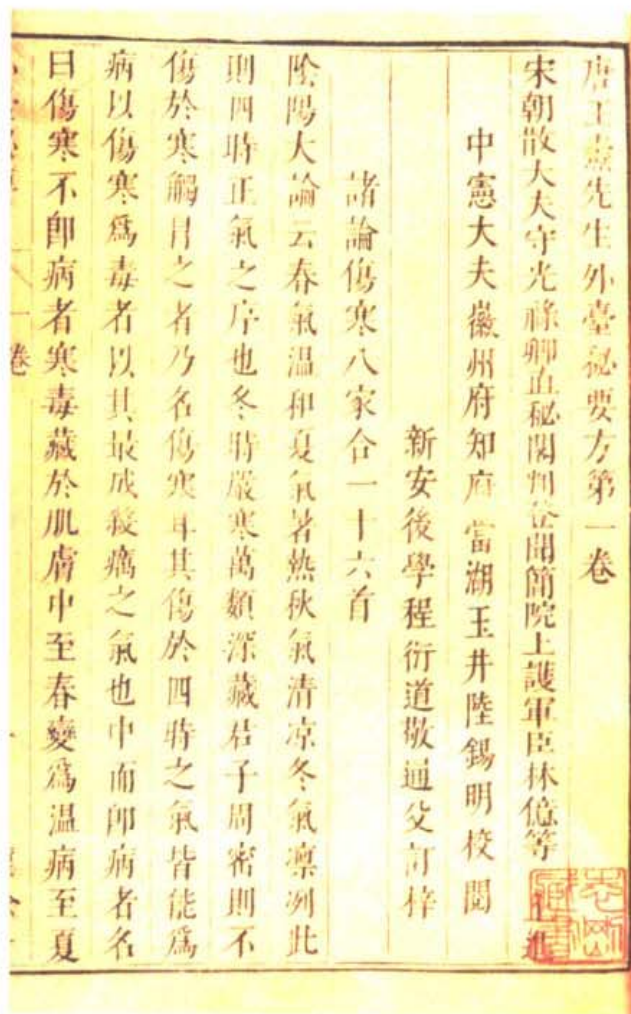 唐王燾先生外臺秘要方第一卷
宋朝散大夫守光祿卿直秘閣判登聞簡院上護軍臣林億等上進
中憲大夫徽州府知府當湖玉井陸錫明校閱
新安後學程衍道敬通父訂梓
諸論傷寒八家合一十六首
陰陽大論云春氣温和夏氣暑熱秋氣清凉冬氣凛冽此
則四時正氣之序也冬時嚴寒萬類深藏君子周密則不
傷於寒觸冒之者乃名傷寒耳其傷於四時之氣皆能爲
病以傷寒爲毒者以其最成殺癘之氣也中而卽病者名
曰傷寒不卽病者寒毒藏於肌膚中至春變爲温病至夏
一卷